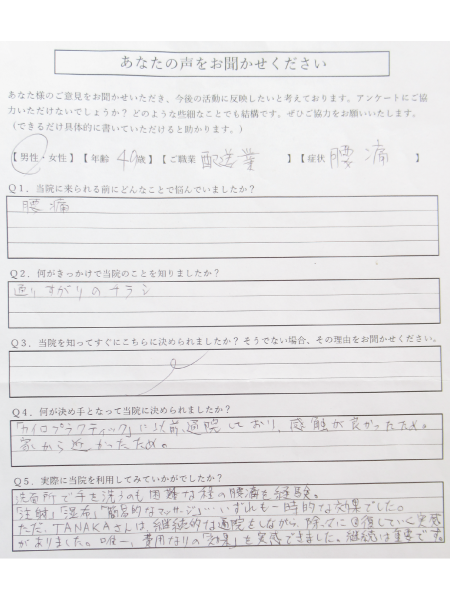 あなたの声をお聞かせください
あなた様のご意見をお聞かせいただき、今後の活動に反映したいと考えております。アンケートにご協
力いただけないでしょうか？どのような些細なことでも結構です。ぜひご協力をお願いいたします。
（できるだけ具体的に書いていただけると助かります。）
【男性・女性】【年齢 40歳】【ご職業 配送業 】【症状 腰痛 】
Q1．当院に来られる前にどんなことで悩んでいましたか？
腰痛
Q2．何がきっかけで当院のことを知りましたか？
通りすがりのチラシ
Q3．当院を知ってすぐにこちらに決められましたか？そうでない場合、その理由をお聞かせください。
Q4．何が決め手となって当院に決められましたか？
「カイロプラクティック」に以前通院しており、感触が良かったため。
家から近かったため。
Q5．実際に当院を利用してみていかがでしたか？
洗面所で手を洗うのも困難な程の腰痛を経験。
「注射」「湿布」「簡易的なマッサージ」…いずれも一時的な効果でした。
ただ、TANAKAさんは、継続的な通院をしながら、除々に回復していく実感
がありました。唯一、費用なりの「効果」を実感できました。継続は重要です。